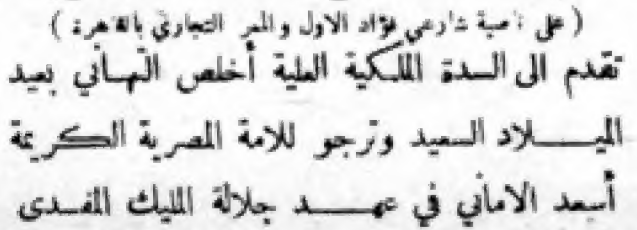 ( على ناصية شارعي فؤاد الاول والممر التجاري بالقاهرة )
تقدم الى السدة الملكية العلية أخلص التهاني بعيد
الميـــلاد السعيد وترجو للامة المصرية الكريمة
أسعد الاماني في عهـــد جلالة المليك المفدى